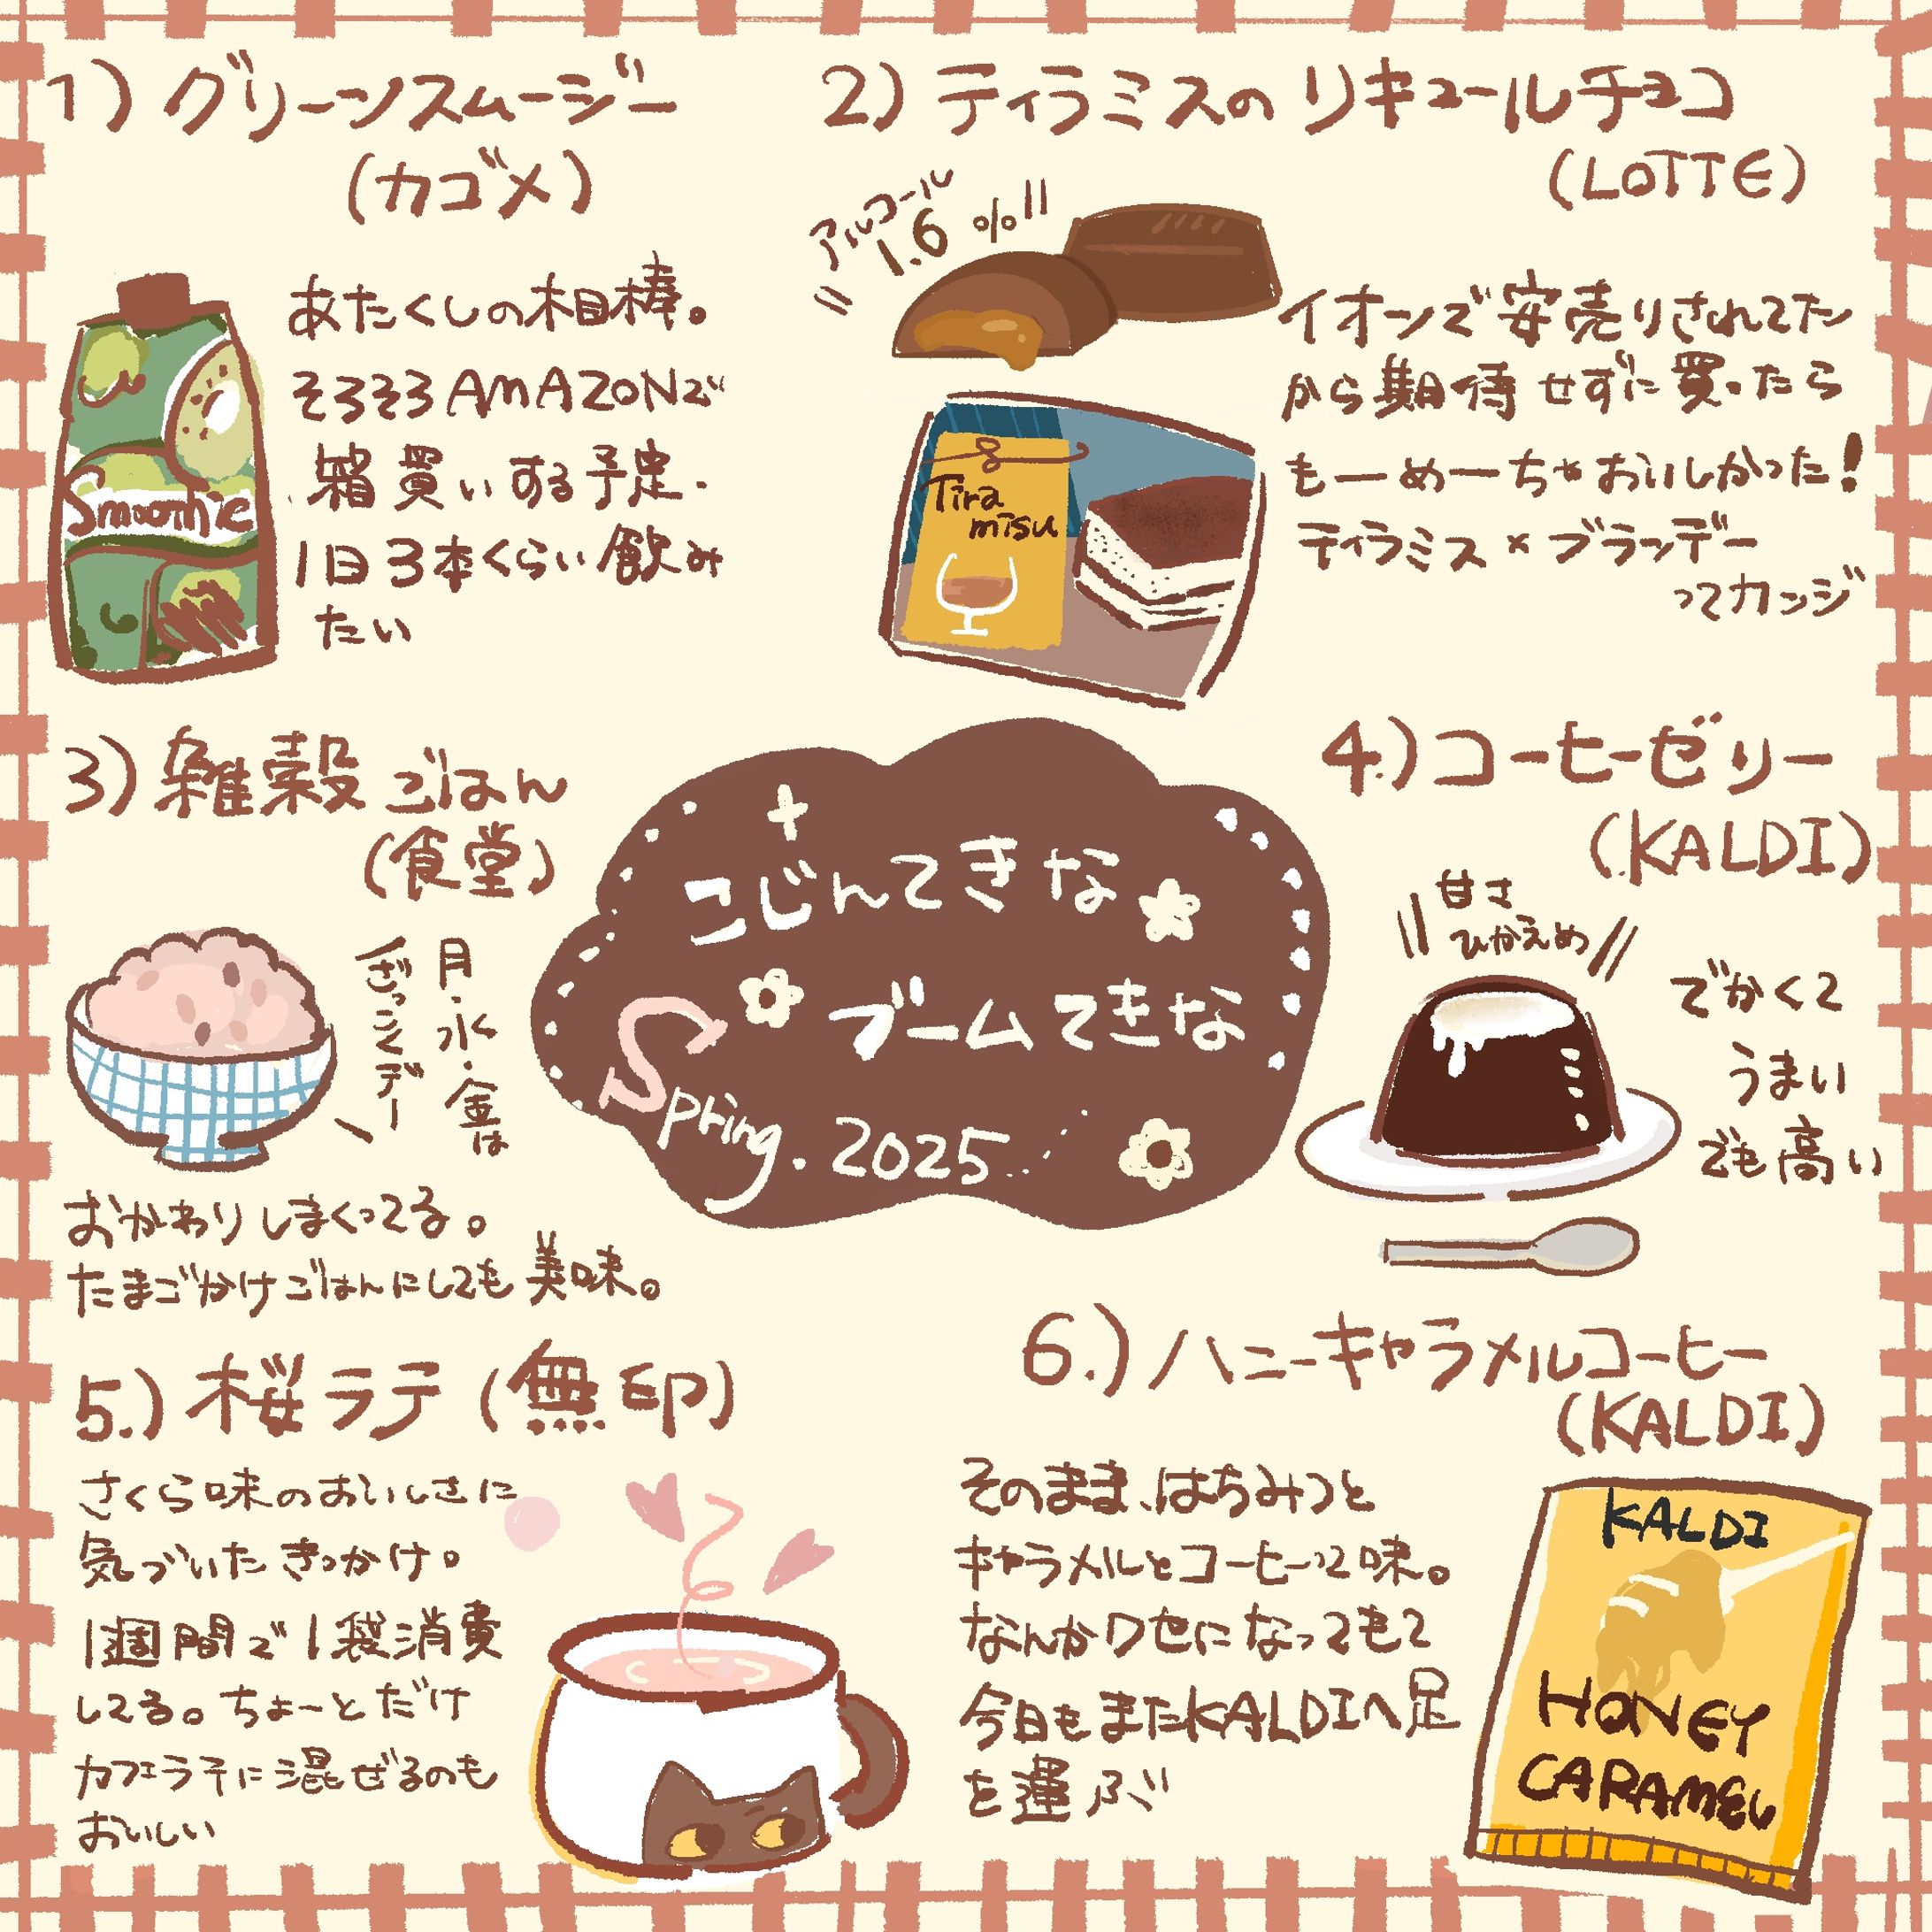 1) グリーンスムージー
(カゴメ)
Smoothie
あたくしの相棒。
そろそろAMAZONで
箱買いする予定.
1日3本くらい飲み
たい
2) ティラミスのリキュールチョコ
(LOTTE)
アルコール
1.6%
Tira
misu
イオンで安売りされてた
から期待せずに買ったら
もーめーちゃおいしかった!
ティラミス×ブランデー
ってカンジ
3) 雑穀ごはん
(食堂)
月・水・金は
ざっこくデー
おかわりしまくってる。
たまごかけごはんにしても美味。
こじんてきな
ブームてきな
Spring. 2025...
4.) コーヒーゼリー
(KALDI)
甘さ
ひかえめ
でかくて
うまい
でも高い
5.) 桜ラテ (無印)
さくら味のおいしさに
気づいたきっかけ。
1週間で1袋消費
してる。ちょーとだけ
カフェラテに混ぜるのも
おいしい
6.) ハニーキャラメルコーヒー
(KALDI)
そのまま、はちみつと
キャラメルとコーヒーって味。
なんかクセになってもて
今日もまたKALDIへ足
を運ぶ
KALDI
HONEY
CARAMEL